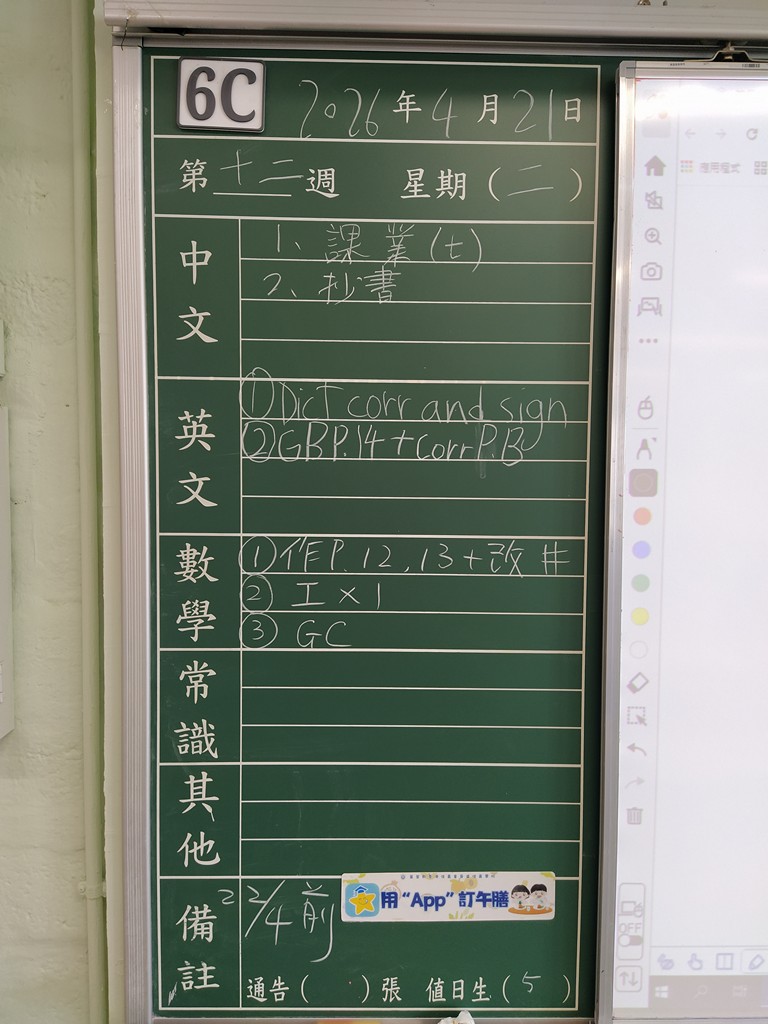 6C
2026年4月21日
第十二週 星期(二)
中文
1、課業(七)
2、抄書
英文
①Dict corr and sign
②GBP.14+corr P.B
數學
①作P.12,13+改井
② 工×1
③ GC
常識
其他
備註
22/4前
用“App”訂午膳
通告( )張 值日生(5)
應用程式
OFF